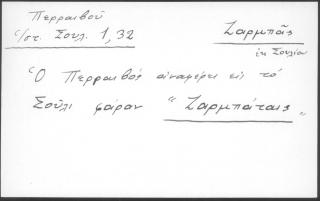 Περραιβοῦ
Ἱστ. Σουλ. 1, 32
Ζαρμπᾶς
ἐκ Σουλίου
Ὁ Περραιβός ἀναφέρει εἰς τό
Σοῦλι φάραν "Ζαρμπάταις"